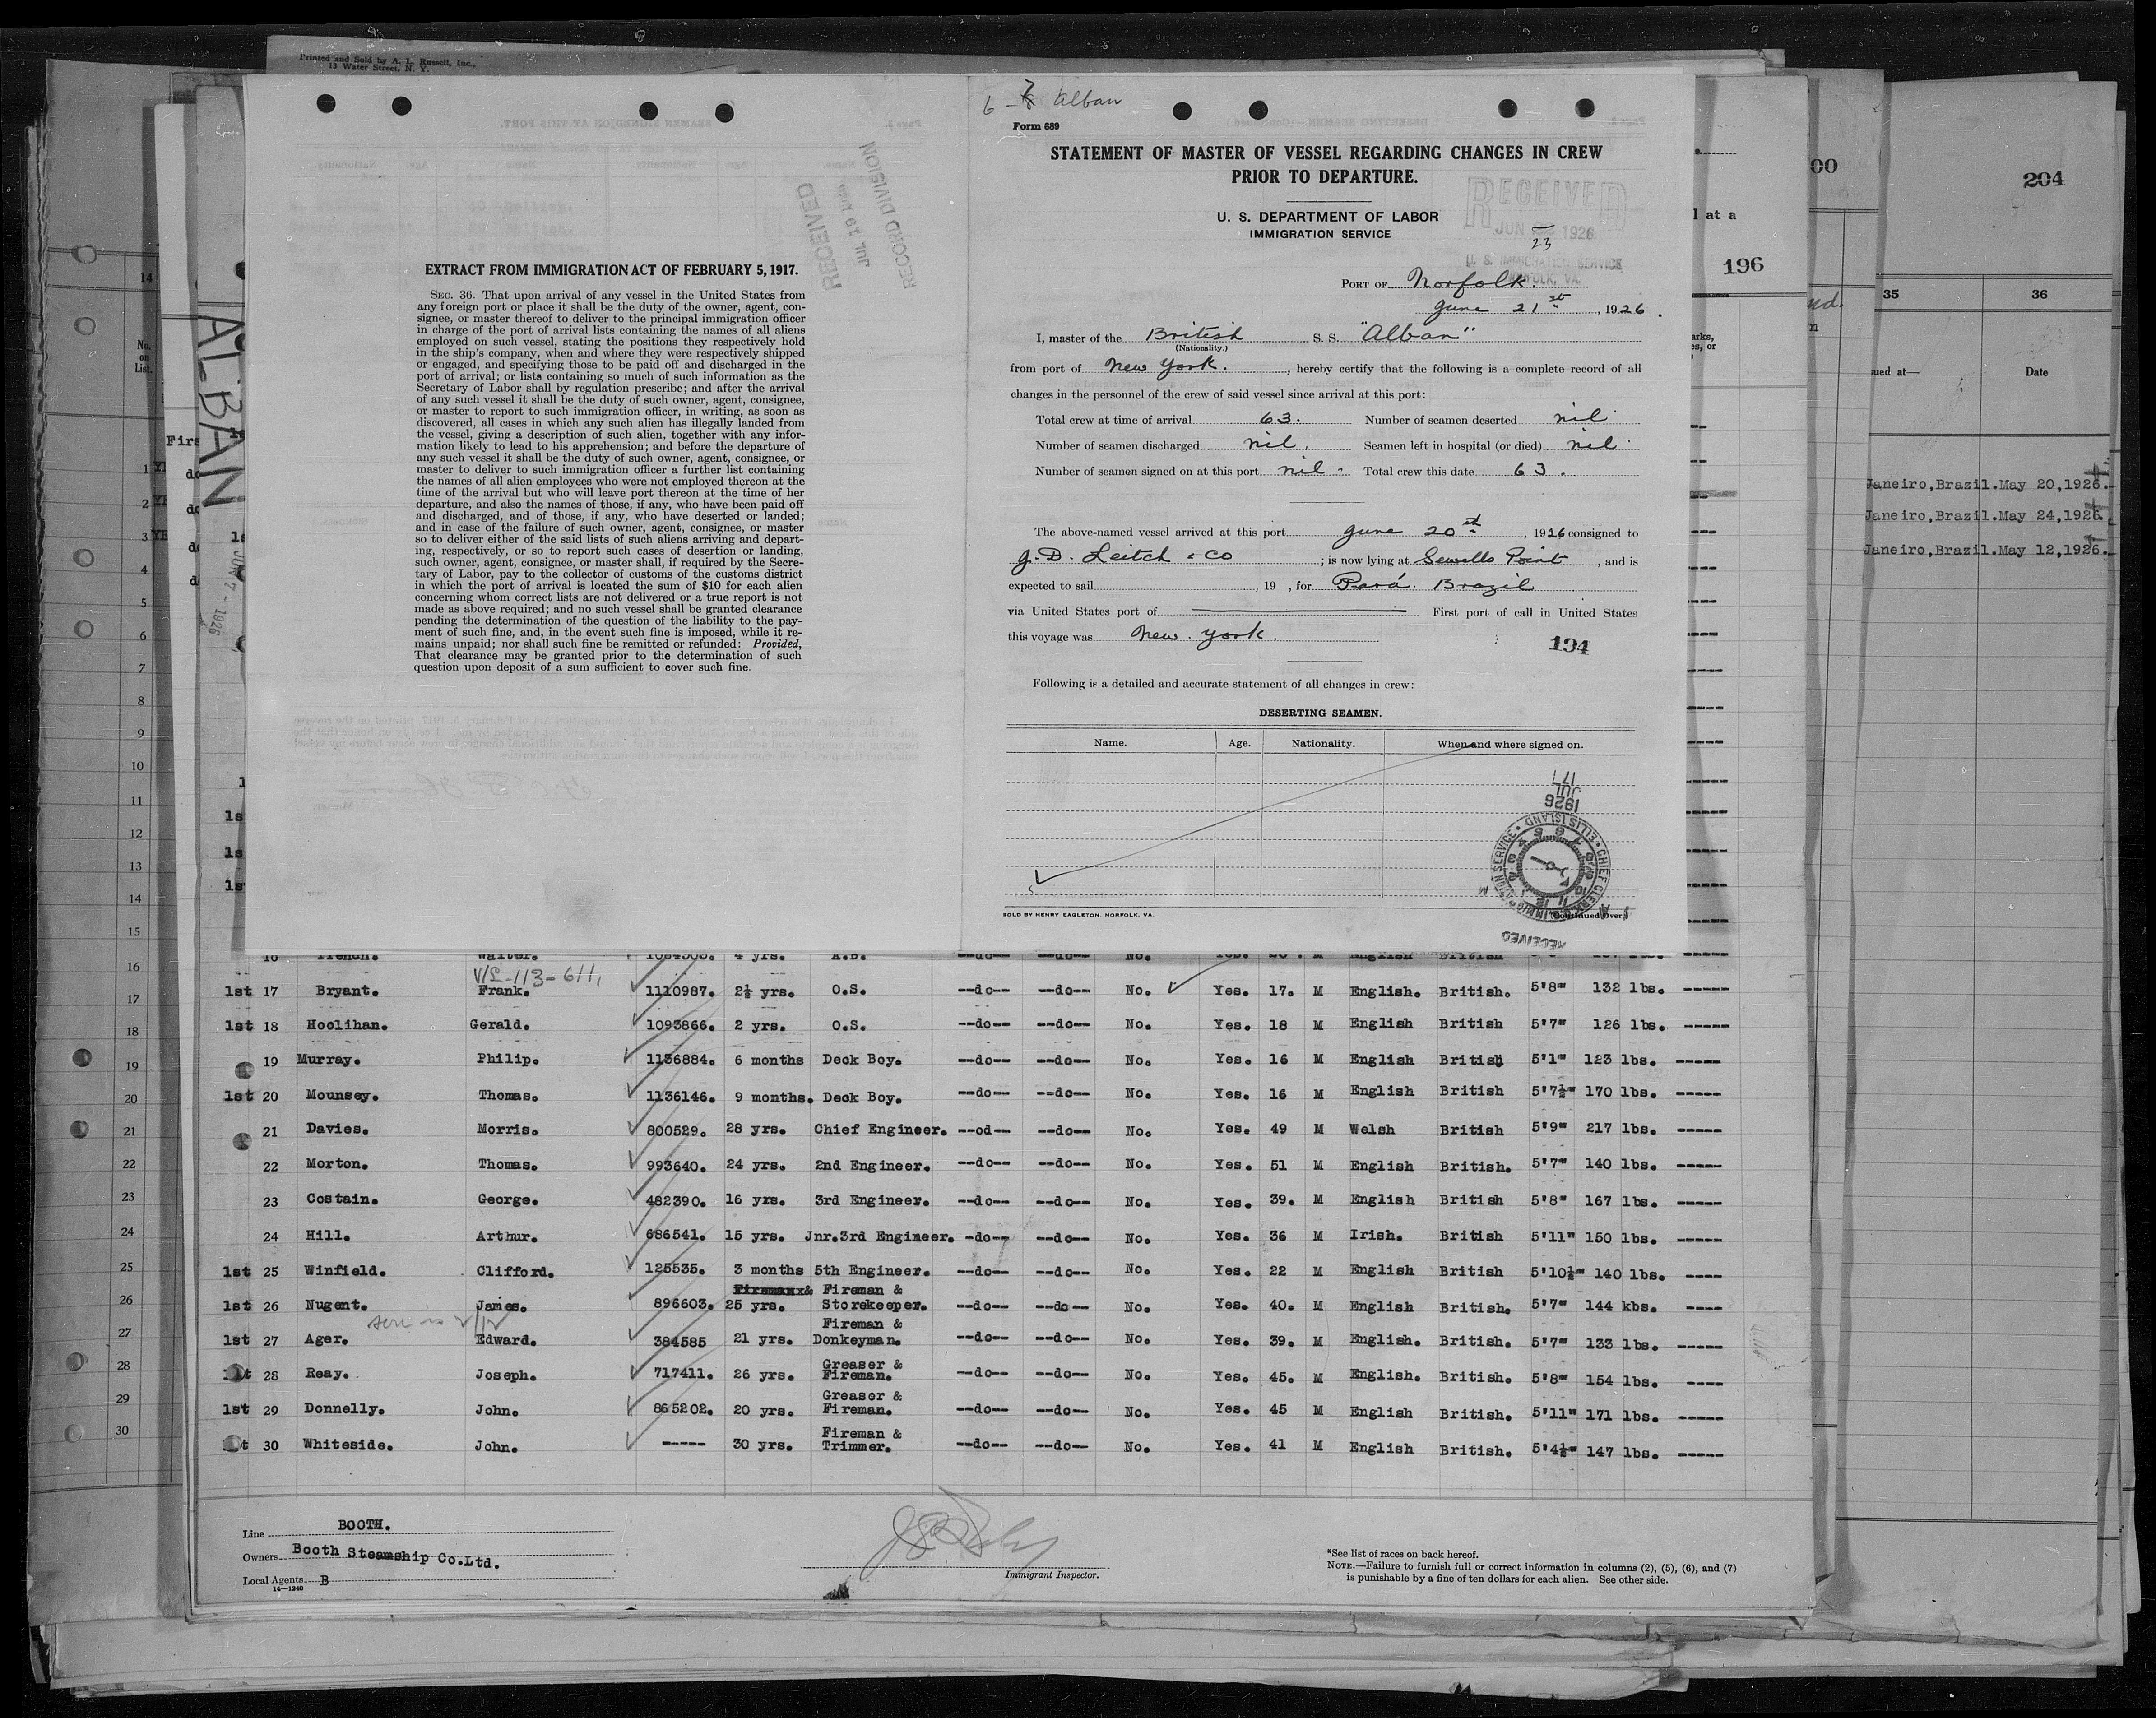 Printed and Sold by A. L. Russell, Inc.,
13 Water Street, N. Y.
ALBAN
JUN 7 - 1926
EXTRACT FROM IMMIGRATION ACT OF FEBRUARY 5, 1917.
SEC. 36. That upon arrival of any vessel in the United States from
any foreign port or place it shall be the duty of the owner, agent, con-
signee, or master thereof to deliver to the principal immigration officer
in charge of the port of arrival lists containing the names of all aliens
employed on such vessel, stating the positions they respectively hold
in the ship's company, when and where they were respectively shipped
or engaged, and specifying those to be paid off and discharged in the
port of arrival; or lists containing so much of such information as the
Secretary of Labor shall by regulation prescribe; and after the arrival
of any such vessel it shall be the duty of such owner, agent, consignee,
or master to report to such immigration officer, in writing, as soon as
discovered, all cases in which any such alien has illegally landed from
the vessel, giving a description of such alien, together with any infor-
mation likely to lead to his apprehension; and before the departure of
any such vessel it shall be the duty of such owner, agent, consignee, or
master to deliver to such immigration officer a further list containing
the names of all alien employees who were not employed thereon at the
time of the arrival but who will leave port thereon at the time of her
departure, and also the names of those, if any, who have been paid off
and discharged, and of those, if any, who have deserted or landed;
and in case of the failure of such owner, agent, consignee, or master
so to deliver either of the said lists of such aliens arriving and depart-
ing, respectively, or so to report such cases of desertion or landing,
such owner, agent, consignee, or master shall, if required by the Secre-
tary of Labor, pay to the collector of customs of the customs district
in which the port of arrival is located the sum of $10 for each alien
concerning whom correct lists are not delivered or a true report is not
made as above required; and no such vessel shall be granted clearance
pending the determination of the question of the liability to the pay-
ment of such fine, and, in the event such fine is imposed, while it re-
mains unpaid; nor shall such fine be remitted or refunded: Provided,
That clearance may be granted prior to the determination of such
question upon deposit of a sum sufficient to cover such fine.
RECEIVED
JUL 19 1926
RECORD DIVISION
Alban
Form 689
STATEMENT OF MASTER OF VESSEL REGARDING CHANGES IN CREW
PRIOR TO DEPARTURE.
U. S. DEPARTMENT OF LABOR
IMMIGRATION SERVICE
RECEIVED
JUN 23 1926
U. S. IMMIGRATION SERVICE
NORFOLK, VA.
PORT OF Norfolk.
June 21st, 1926.
I, master of the British S. S. "Alban"
(Nationality.)
from port of New York., hereby certify that the following is a complete record of all
changes in the personnel of the crew of said vessel since arrival at this port:
Total crew at time of arrival 63. Number of seamen deserted nil
Number of seamen discharged nil. Seamen left in hospital (or died) nil
Number of seamen signed on at this port nil - Total crew this date 63.
The above-named vessel arrived at this port June 20st, 1926 consigned to
J. D. Leitch & Co; is now lying at Sewells Point, and is
expected to sail , 19 , for Pará Brazil
via United States port of First port of call in United States
this voyage was New York.
194
Following is a detailed and accurate statement of all changes in crew:
DESERTING SEAMEN.
Name. Age. Nationality. When and where signed on.
1926
JUL
17
CHIEF CLERK IMMIGRATION SERVICE ELLIS ISLAND
RECEIVED
SOLD BY HENRY EAGLETON, NORFOLK, VA.
(Continued Over)
00
204
l at a
196
35 36
ued at— Date
Janeiro,Brazil.May 20,1926.
Janeiro,Brazil.May 24,1926.
Janeiro,Brazil.May 12,1926.
14
No. on List.
1
2
3
4
5
6
7
8
9
10
11
12
13
14
15
16
17
18
19
20
21
22
23
24
25
26
27
28
29
30
V/L-113-611,
1st 17 Bryant. Frank. 1110987. 2½ yrs. O.S. --do-- --do-- No. Yes. 17. M English. British. 5'8" 132 lbs. -----
1st 18 Hoolihan. Gerald. 1093866. 2 yrs. O.S. --do-- --do-- No. Yes. 18 M English British 5'7" 126 lbs. -----
19 Murray. Philip. 1136884. 6 months Deck Boy. --do-- --do-- No. Yes. 16 M English British 5'1" 123 lbs. -----
1st 20 Mounsey. Thomas. 1136146. 9 months. Deck Boy. --do-- --do-- No. Yes. 16 M English British 5'7½" 170 lbs. -----
21 Davies. Morris. 800529. 28 yrs. Chief Engineer. --od-- --do-- No. Yes. 49 M Welsh British 5'9" 217 lbs. -----
22 Morton. Thomas. 993640. 24 yrs. 2nd Engineer. --do-- --do-- No. Yes. 51 M English British. 5'7" 140 lbs. -----
23 Costain. George. 482390. 16 yrs. 3rd Engineer. --do-- --do-- No. Yes. 39. M English British 5'8" 167 lbs. -----
24 Hill. Arthur. 686541. 15 yrs. Jnr.3rd Engineer. -do-- --do-- No. Yes. 36 M Irish. British 5'11" 150 lbs. -----
1st 25 Winfield. Clifford. 125535. 3 months 5th Engineer. --do-- --do-- No. Yes. 22 M English British 5'10½" 140 lbs. ----
1st 26 Nugent. James. 896603. 25 yrs. Fireman & Storekeeper. --do-- --do-- No. Yes. 40. M English British. 5'7" 144 kbs. ----
1st 27 Ager. Edward. 384585 21 yrs. Fireman & Donkeyman. --do-- --do-- No. Yes. 39. M English. British. 5'7" 133 lbs. -----
28 Reay. Joseph. 717411. 26 yrs. Greaser & Fireman. --do-- --do-- No. Yes. 45. M English. British. 5'8" 154 lbs. ----
1st 29 Donnelly. John. 865202. 20 yrs. Greaser & Fireman. --do-- --do-- No. Yes. 45 M English British. 5'11" 171 lbs. -----
30 Whiteside. John. ----- 30 yrs. Fireman & Trimmer. --do-- --do-- No. Yes. 41 M English British. 5'4½" 147 lbs. -----
Line BOOTH.
Owners Booth Steamship Co.Ltd.
Local Agents B
14—1240
Immigrant Inspector.
*See list of races on back hereof.
NOTE.—Failure to furnish full or correct information in columns (2), (5), (6), and (7)
is punishable by a fine of ten dollars for each alien. See other side.